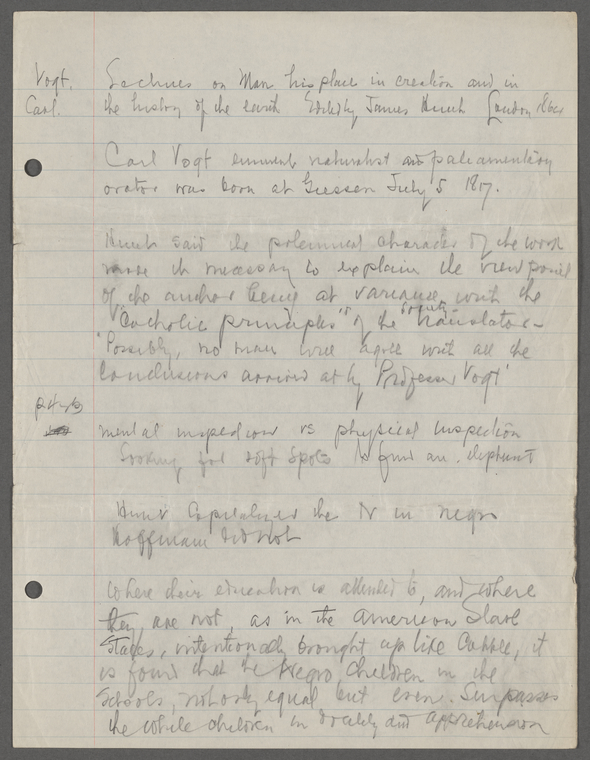 Vogt, Lectures on Man his place in creation and in
Carl. the history of the earth Edited by James Hunt London
Carl Vogt eminent naturalist and parliamentary
orator was born at Giessen July 5 1817.
Hunt said the polemical character of the work
made it necessary to explain the view point
of the author being at variance with the
"Catholic principles" of the translator
"Possibly, no man will agree with all the
Conclusions arrived at by Professor Vogt"
mental inspection vs physical inspection
Looking for soft spots to find an elephant
Hunt Capitalized the N in negro
Hoffmann did not
Where their education is attended to, and where
they are not, as in the American Slave
States, intentionally brought up like Cattle, it
is found that the Negro children in the
Schools, not only equal but even Surpasses
the white children in docility and apprehension